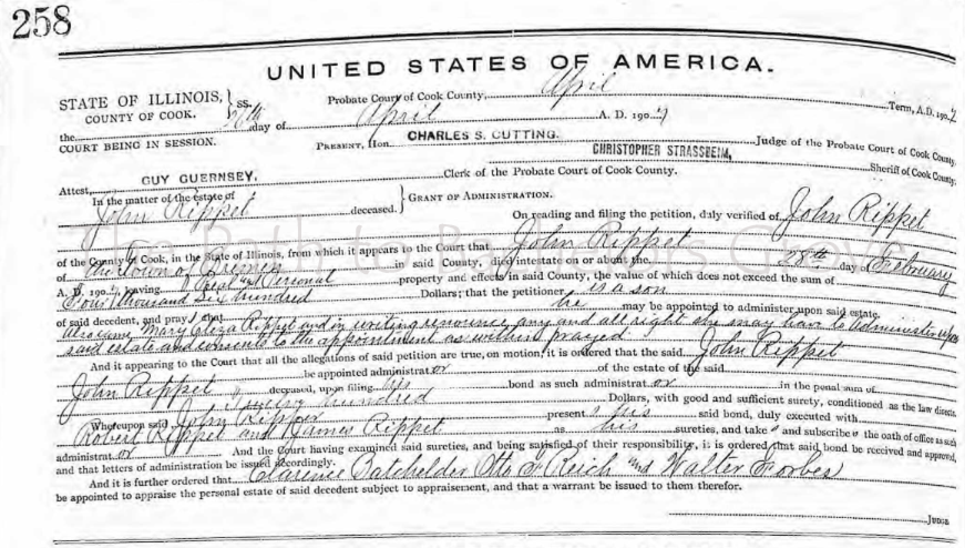 258
UNITED STATES OF AMERICA.
STATE OF ILLINOIS, } ss. Probate Court of Cook County, April Term, A.D. 1907
COUNTY OF COOK.
the day of April A. D. 1907
COURT BEING IN SESSION. PRESENT, Hon. CHARLES S. CUTTING. Judge of the Probate Court of Cook County.
CHRISTOPHER STRASSHEIM, Sheriff of Cook County.
Attest, GUY GUERNSEY, Clerk of the Probate Court of Cook County.
In the matter of the estate of } GRANT OF ADMINISTRATION.
John Rippet deceased.
On reading and filing the petition, duly verified of John Rippet
of the County of Cook, in the State of Illinois, from which it appears to the Court that John Rippet
of the Town of Bremen in said County, died intestate on or about the 28th day of February
A. D. 1907, having Real and Personal property and effects in said County, the value of which does not exceed the sum of
Four thousand Six hundred Dollars; that the petitioner is a son
of said decedent, and pray s that he may be appointed to administer upon said estate.
Also came Mary Eliza Rippet and in writing renounce any and all right she may have to administer upon
said estate and consents to the appointment as within prayed
And it appearing to the Court that all the allegations of said petition are true, on motion, it is ordered that the said John Rippet
be appointed administrator of the estate of the said
John Rippet deceased, upon filing his bond as such administrator in the penal sum of
hundred Dollars, with good and sufficient surety, conditioned as the law directs.
Whereupon said John Rippet present s his said bond, duly executed with
Robert Rippet and James Rippet as his sureties, and take s and subscribe s the oath of office as such
administrator And the Court having examined said sureties, and being satisfied of their responsibility, it is ordered that said bond be received and approved,
and that letters of administration be issued accordingly.
And it is further ordered that Clarence Batchelder Otto F Reich and Walter Forbes
be appointed to appraise the personal estate of said decedent subject to appraisement, and that a warrant be issued to them therefor.
JUDGE